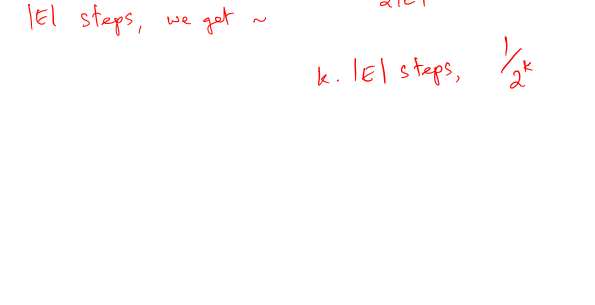 |E| steps, we get ~
k. |E| steps, 1/2^k